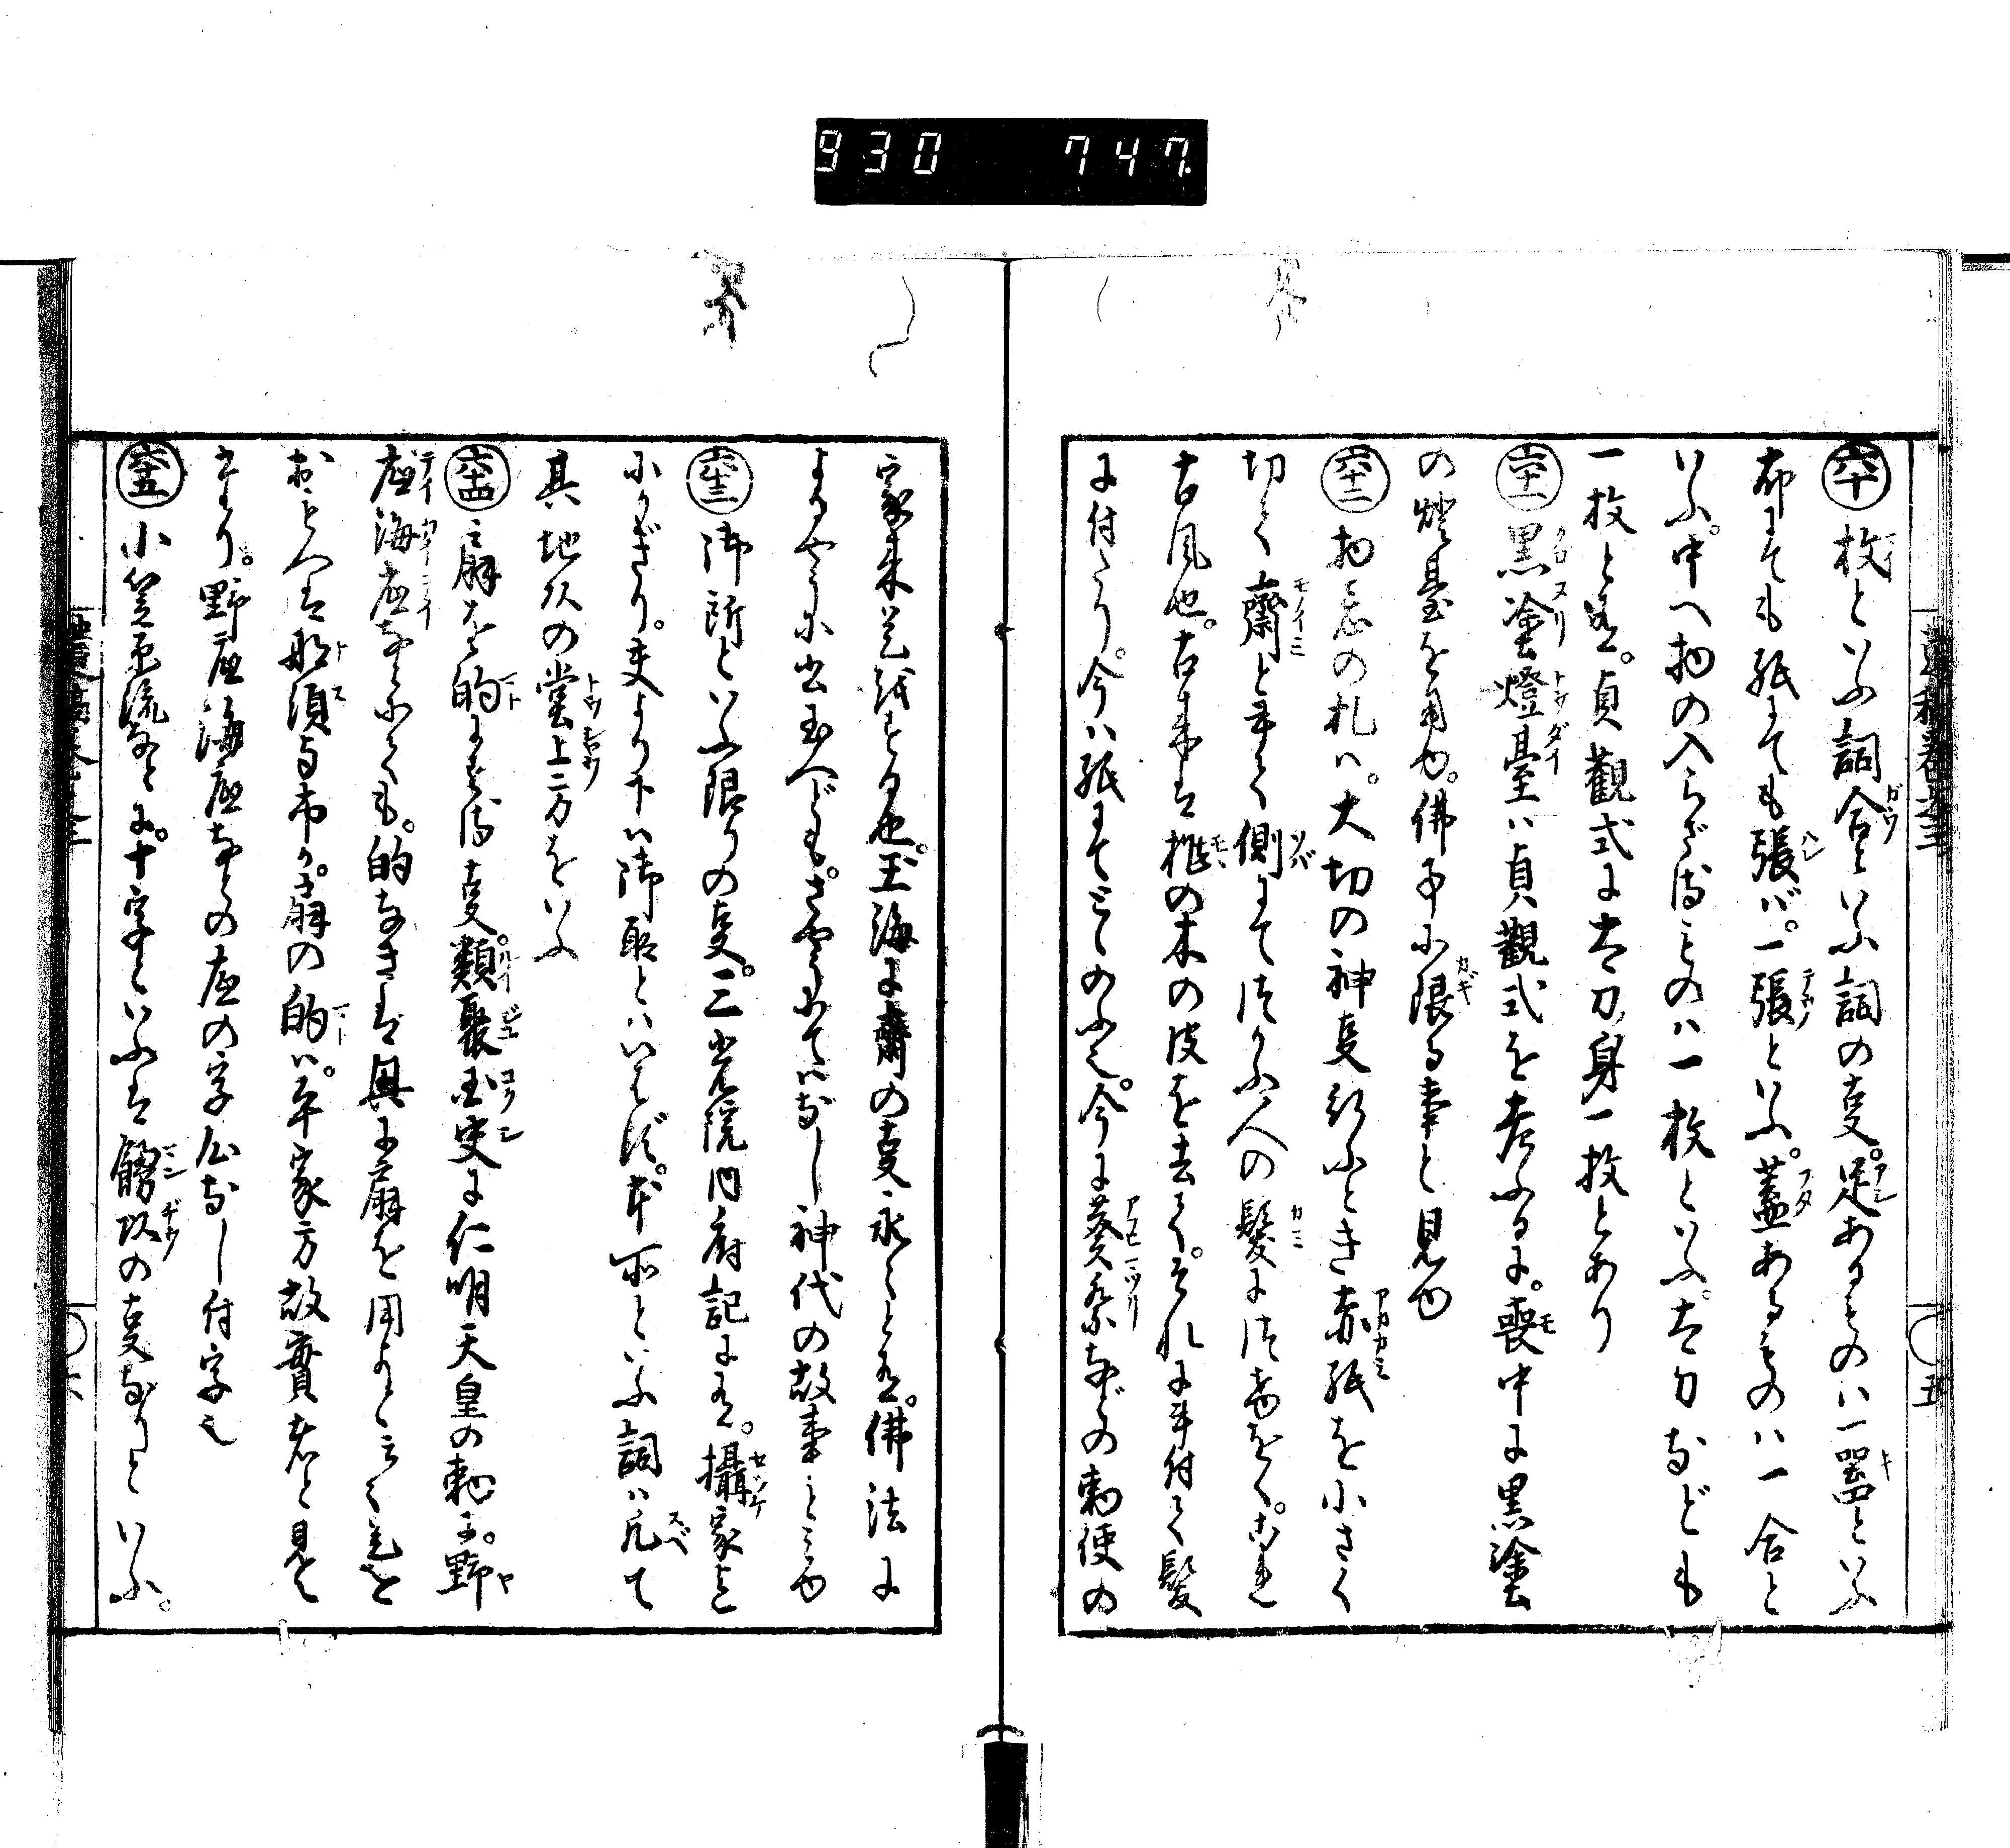 930 747
六十 枚といふ詞合といふ詞の事。足あるものハ一器といふ
布にても紙にても張バ。一張といふ。蓋あるものハ一合と
いふ。中へ物の入らざるものハ一枚といふ。太刀なども
一枚と有。貞觀式に太刀身一枚とあり
六十一 黒塗燈臺ハ貞觀式を考ふるに。喪中に黒塗
の燈臺を用ゆ。佛事に限る事と見ゆ
六十二 物忌の札ハ。大切の神事行ふとき赤紙を小さく
切て齋と書て側にてつかふ人の髪につけおく。これ
古風也。古来は桃の木の皮を去て。それに書付て髪
に付たり。今ハ紙にてこしのふ也。今に葵祭などの勅使の
家来是をする也。玉海に齋の事永くと有。佛法に
よるやうに出玉へども。さやうにてハなし神代の故事と見ゆ
六十三 御所といふ限りの事。三光院内府記に有。攝家迄と
にかぎり。夫より下ハ御取とハいはず。本所といふ詞ハ凡て
其地跡の堂上方をいふ
六十四 扇を的にする事。類聚国史に仁明天皇の勅に。野
庭海庭などにても。的なきは興に扇を用よと云て是を
おもへば那須与市が。扇の的ハ。平家方故實者と見て
立たり。野庭海庭などの庭の字心なし付字也
六十五 小笠原流などに。十字といふは饅頭の事なりといふ。
五
六